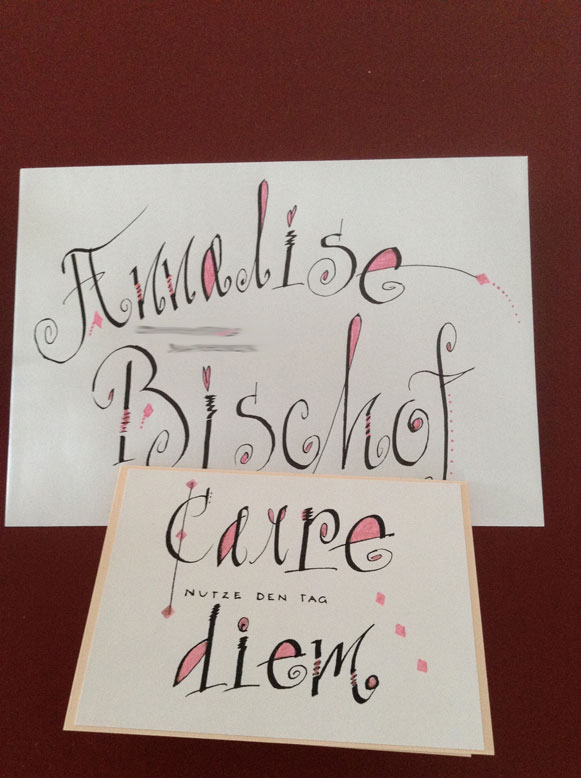 Annalise
Bischof
Carpe
NUTZE DEN TAG
diem.